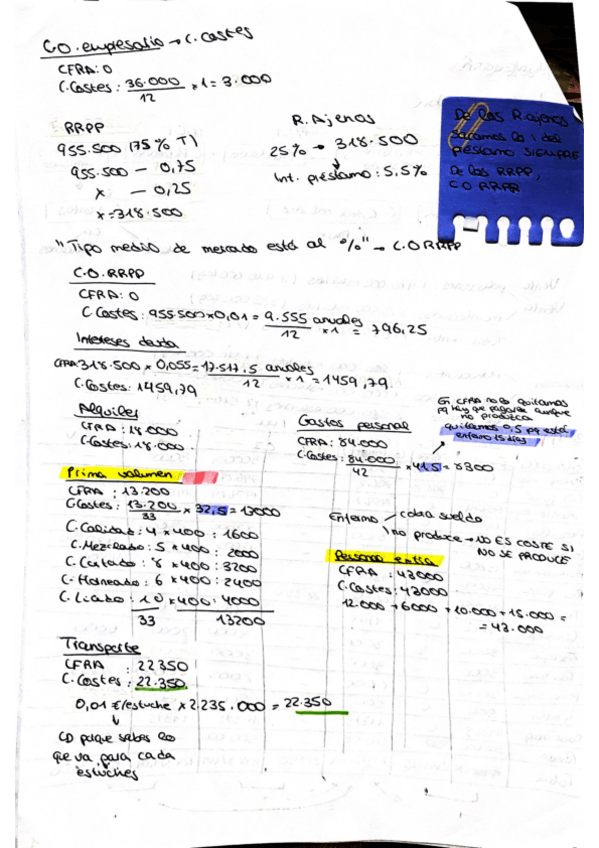 C.O. empresario → C. Costes
CFRA: 0
C. Costes: 36.000/12 × 1 = 3.000
RRPP
955.500 (75% T)
955.500 — 0,75
x — 0,25
x = 318.500
R. Ajenos
25% → 318.500
↓
Int. préstamo: 5,5%
De los R. ajenos
sacamos la i del
préstamo SIEMPRE
De los RRPP,
CO RRPP
"Tipo medio de mercado está al "%" → C.O RRPP
C.O. RRPP
CFRA: 0
C. Costes: 955.500 × 0,01 = 9.555 anuales/12 × 1 = 796,25
Intereses deuda
CFRA 318.500 × 0,055 = 17.517,5 anuales/12 × 1 = 1459,79.
C. Costes: 1459,79
Alquiler
CFRA: 18.000
C. Costes: 18.000
Gastos personal
CFRA: 84.000
C. Costes: 84.000/42 × 41,5 = 8300
En CFRA no lo quitamos
pq hay que pagarle aunque
no produzca
quitamos 0,5 pq está
enfermo 15 días
Prima volumen
CFRA: 13.200
C. Costes: 13.200/33 × 32,5 = 13000
C. Calidad: 4 × 400: 1600
C. Mezclado: 5 × 400: 2000
C. Cortado: 8 × 400: 3200
C. Horneado: 6 × 400: 2400
C. Liado: 10 × 400: 4000
33 13200
Enfermo cobra sueldo
no produce → NO ES COSTE SI
NO SE PRODUCE
Personal extra
CFRA: 43000
C. Costes: 43000
12.000 + 6000 + 10.000 + 15.000 =
= 43.000
Transporte
CFRA: 22350
C. Costes: 22.350
0,01 €/estuche × 2.235.000 = 22.350
↓
CD porque sabes lo
que va para cada
estuches